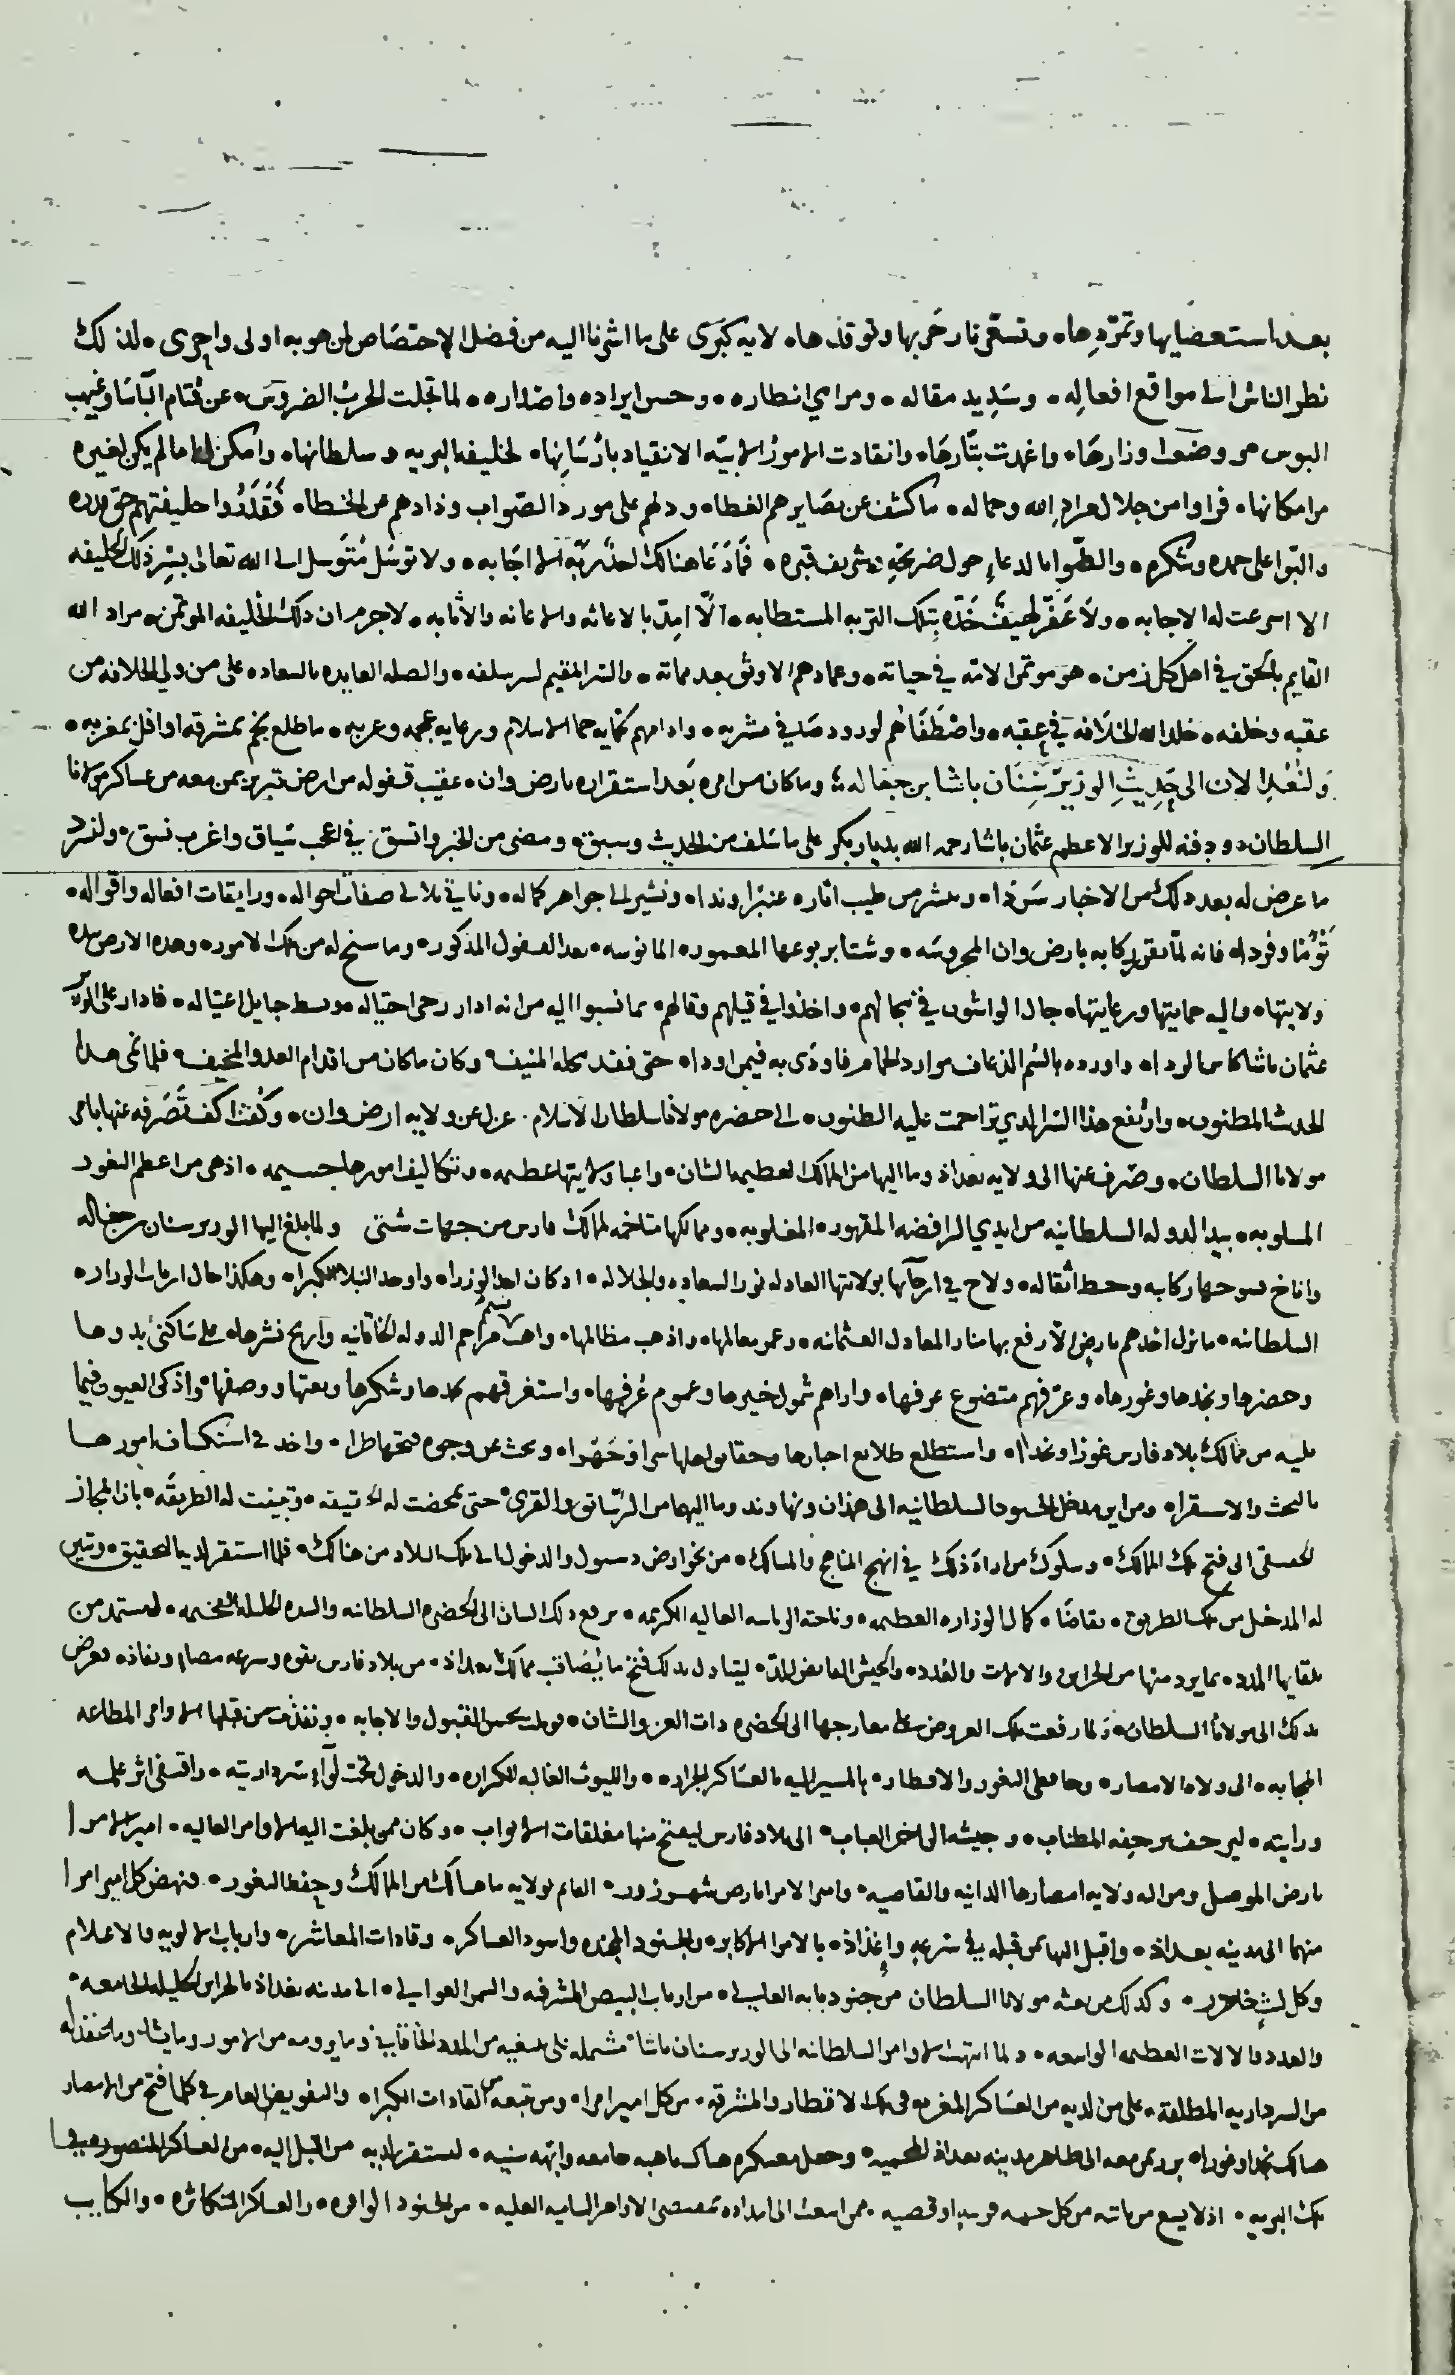 بعد استعصايها وتمرّدها ٠ وتسعّر نار حربها وتوقدها ٠ لايه كبرى على ما اشرنا اليه من فضل الاختصاص لمن هو به اولى واحرى ٠ لذلك
نظر الناس الى مواقع افعاله ٠ وسديد مقاله ٠ ومرامي انظاره ٠ وحسن ايراده واصداره ٠ لما تجلت الحرب الضروس ٠ عن قتام الباسا وغيهب
البوس ووضعوا وزارها ٠ واغمدت بتّارها ٠ وانقادت الامور الابيّه الانقياد بارسانها ٠ لخليفه البريه وسلطانها ٠ وامكن لها ما لم يكن لغيره
من امكانها ٠ فراوا من جلال مراد الله وجماله ٠ ما كشف عن بصايرهم الغطاء ودلهم على مورد الصواب وذادهم عن الخطاء ٠ فقلّدوا خليفتهم حق قدره
والتوا على حمده وشكره ٠ والظّوا بالدعاء حول ضريحه وشريف قبره ٠ فما دعا هناك احد ربّه الا اجابه ٠ ولا توسّل متوسل الى الله تعالى بسر ذلك الخليفه
الا اسرعت له الاجابه ٠ ولا عفّر لهيف خدّه بتلك التربه المستطابه ٠ الّا امدّ بالاغاثه والاعانه والاثابه ٠ لا جرم ان ذلك الخليفه الموتمن ٠ مراد الله
القايم بالحق في اهل كل زمن ٠ هو موتمّ الامّه في حياته ٠ وعمادهم الاوثق بعد مماته ٠ والسر المقيم لسر سلفه ٠ والصله العايده بالسعاده على من ولي الخلافه من
عقبه وخلفه ٠ خلد الله الخلافه في عقبه ٠ واصطفاهم لورود صافي مشربه ٠ وادامهم لحمايه حما الاسلام ورعايه عجمه وعربه ٠ ما طلع نجم بمشرقه او افل بمغربه ٠
ولنعد الان الى حديث الوزير سنان باشا بن جغاله ٠ وما كان من امره بعد استقراره بارض وان ٠ عقيب قفوله من ارض تبريز بمن معه من عساكر مولانا
السلطان ٠ ودفنه للوزير الاعظم عثمان باشا رحمه الله بديار بكر على ما سلف من الحديث وسبق ٠ ومضى من الخبر واتسق في اعجب سياق واغرب نسق ٠ ولنورد
ما عرض له بعد ذلك من الاخبار سردا ٠ وننشر من طيب اثاره عنبرا وندا ٠ ونشير الى جواهر كماله ٠ وناتي بلالي صفات احواله ٠ ورايقات افعاله واقواله ٠
تؤما وفردا ٠ فانه لما تقرر ركابه بارض وان المحروسه ٠ وشتا بربوعها المعموره المانوسه ٠ بعد القفول المذكور ٠ وما سنح له من تلك الامور ٠ وهذه الارض بيده
ولايتها ٠ واليه حمايتها ورعايتها ٠ جال الواشون في مجالهم ٠ واخذوا في قيلهم وقالهم ٠ بما نسبوا اليه من انه ادار رحى احتياله ٠ وبسط حبايل اغتياله ٠ فادار على الوزير
عثمان باشا كاس الردا ٠ واورده بالسّم الذعاف موارد الحمام فاودى به فيمن اودا ٠ حتى فقد محله المنيف ٠ وكان ما كان من اقدام العدو المخيف ٠ فلما نمى هذا
الحدث المظنون ٠ وارتفع هذا السر الذي تزاحمت عليه الظنون ٠ الى حضره مولانا سلطان الاسلام ٠ عزل عن ولايه ارض وان ٠ وكفّت اكفّ تصرفه عنها بامر
مولانا السلطان ٠ وصرف عنها الى ولايه بغداد وما اليها من الممالك العظيمه الشان ٠ واعبا ولايتها عظيمه ٠ وتكاليف امورها جسيمه ٠ اذ هي من اعظم الثغور
المسلوبه ٠ بيد الدوله السلطانيه من ايدي الرافضه المقهوره المغلوبه ٠ وممالكها متاخمه لممالك فارس من جهات شتى ولما بلغ اليها الوزير سنان بن جغاله
واناخ بسوحها ركابه وحط اثقاله ٠ ولاح في ارجايها بولايتها العادله نور السعاده والجلاله ٠ اذ كان احد الوزراء واوحد النبلاء الكبراء ٠ وهكذا حال ارباب الوزاره
السلطانيه ٠ ما نزل احدهم بارض الا رفع بها منار المعادل العثمانيه ٠ وعمر معالمها ٠ واذهب مظالمها ٠ واهب نسيم مراحم الدوله الخاقانيه واريج نشرها ٠ على ساكني بدوها
وحضرها ونجدها وغورها ٠ وعرّفهم متضوع عرفها ٠ واراهم شمول خيرها وعموم عُرفها ٠ واستغرقهم بحمدها وشكرها ونعتها ووصفها ٠ واذكى العيون فيما
يليه من ممالك بلاد فارس غورا ونجدا ٠ واستطلع طلايع اخبارها وحقايق احوالها سرا وجهرا ٠ وبحث عن وجوه فتحها طرا ٠ واخذ في استكشاف امورها
بالبحث والاستقراء ٠ ومن اين مدخل الجنود السلطانيه الى همذان ونهاوند وما اليها من الرساتيق والقرى ٠ حتى تمحضت له الحقيقه ٠ وتبينت له الطريقه ٠ بان المجاز
الحقيقي الى فتح تلك الممالك ٠ وسلوك من اراد ذلك في انهج المناهج والمسالك ٠ من نحو ارض دسبول والدخول الى تلك البلاد من هناك ٠ فلما استقر لديه التحقيق ٠ وتبين
له المدخل من تلك الطريق ٠ تقاضا ٠ كمال الوزاره العظيمه ٠ وناجته الرياسه العاليه الكريمه ٠ برفع ذلك الشان الى الحضره السلطانيه والسده الجليله الفخيمه ٠ ليستمد من
تلقايها المدد ٠ بما يرد منها من الخزاين والالات والعدد ٠ والجيش الفايض المدد ٠ ليتبادل بذلك فتح ما يصاقب ممالك بغداد ٠ من بلاد فارس بقوه وسرعه مضاء ونفاذ ٠ فعرض
بذلك الى مولانا السلطان ٠ ولما رفعت تلك العروض على معارجها الى الحضره ذات العز والشان ٠ قوبلت بحسن القبول والاجابه ٠ ونفذت من قبلها الاوامر المطاعه
المجابه ٠ الى ولاه الامصار ٠ وحافظي الثغور والاقطار ٠ بالمسير اليه بالعساكر الجراره ٠ والليوث الغالبه الكراره ٠ والدخول تحت لواء سرداريته ٠ واقتفى اثر علمه
ورايته ٠ ليزحف وجيشه الى اخر العباب ٠ الى بلاد فارس ليفتح منها مغلقات الابواب ٠ وكان ممن بلغت اليه الاوامر العاليه ٠ امير الامرا
بارض الموصل ومن اليه ولايه امصارها الدانيه والقاصيه ٠ وامير الامرا بارض شهر زور ٠ القايم بولايه ما هنالك من الممالك وحفظ الثغور ٠ فنهض كل امير امرا
منهما الى مدينه بغداد ٠ واقبل اليها من قبله في سرعه واغذاذ ٠ بالامرا الاكابر ٠ والجنود المجنده واسود العساكر ٠ وقادات المعاشر ٠ وارباب الالويه والاعلام
وكل ليث خادر ٠ وكذلك من بعثه مولانا السلطان من جنود بابه العالي ٠ من ارباب البيض المشرفيه والسمر العوالي ٠ الى مدينه بغداد بالخزاين الجليله الجامعه ٠
والعدد والالات العظيمه الواسعه ٠ ولما انتهت الاوامر السلطانيه الى الوزير سنان باشا ٠ مشتمله على المدد الخاقاني وما يرومه من الامور وما يشاء
من السرداريه المطلقه ٠ على من لديه من العساكر في تلك الاقطار والمشرقيه ٠ من كل امير امرا ٠ ومن تبعه من القادات الكبرا ٠ والتفويض العام في كلما فتح من الامصار
هنالك نجدا وغورا ٠ برز بمن معه الى ظاهر مدينه بغداد المحميه ٠ وجعل معسكره هناك باهبه جامعه وابهه سنيه ٠ ليستقر لديه من اقبل اليه ٠ من العساكر المنصوره
تلك البريه ٠ اذ لا يسع من ياتيه من كل جهه قريبه او قصيه ٠ ممن انبعث الى امداده بمقتضى الاوامر الساميه العليه ٠ من الجنود الوافره ٠ والعساكر المتكاثره ٠ والكتايب